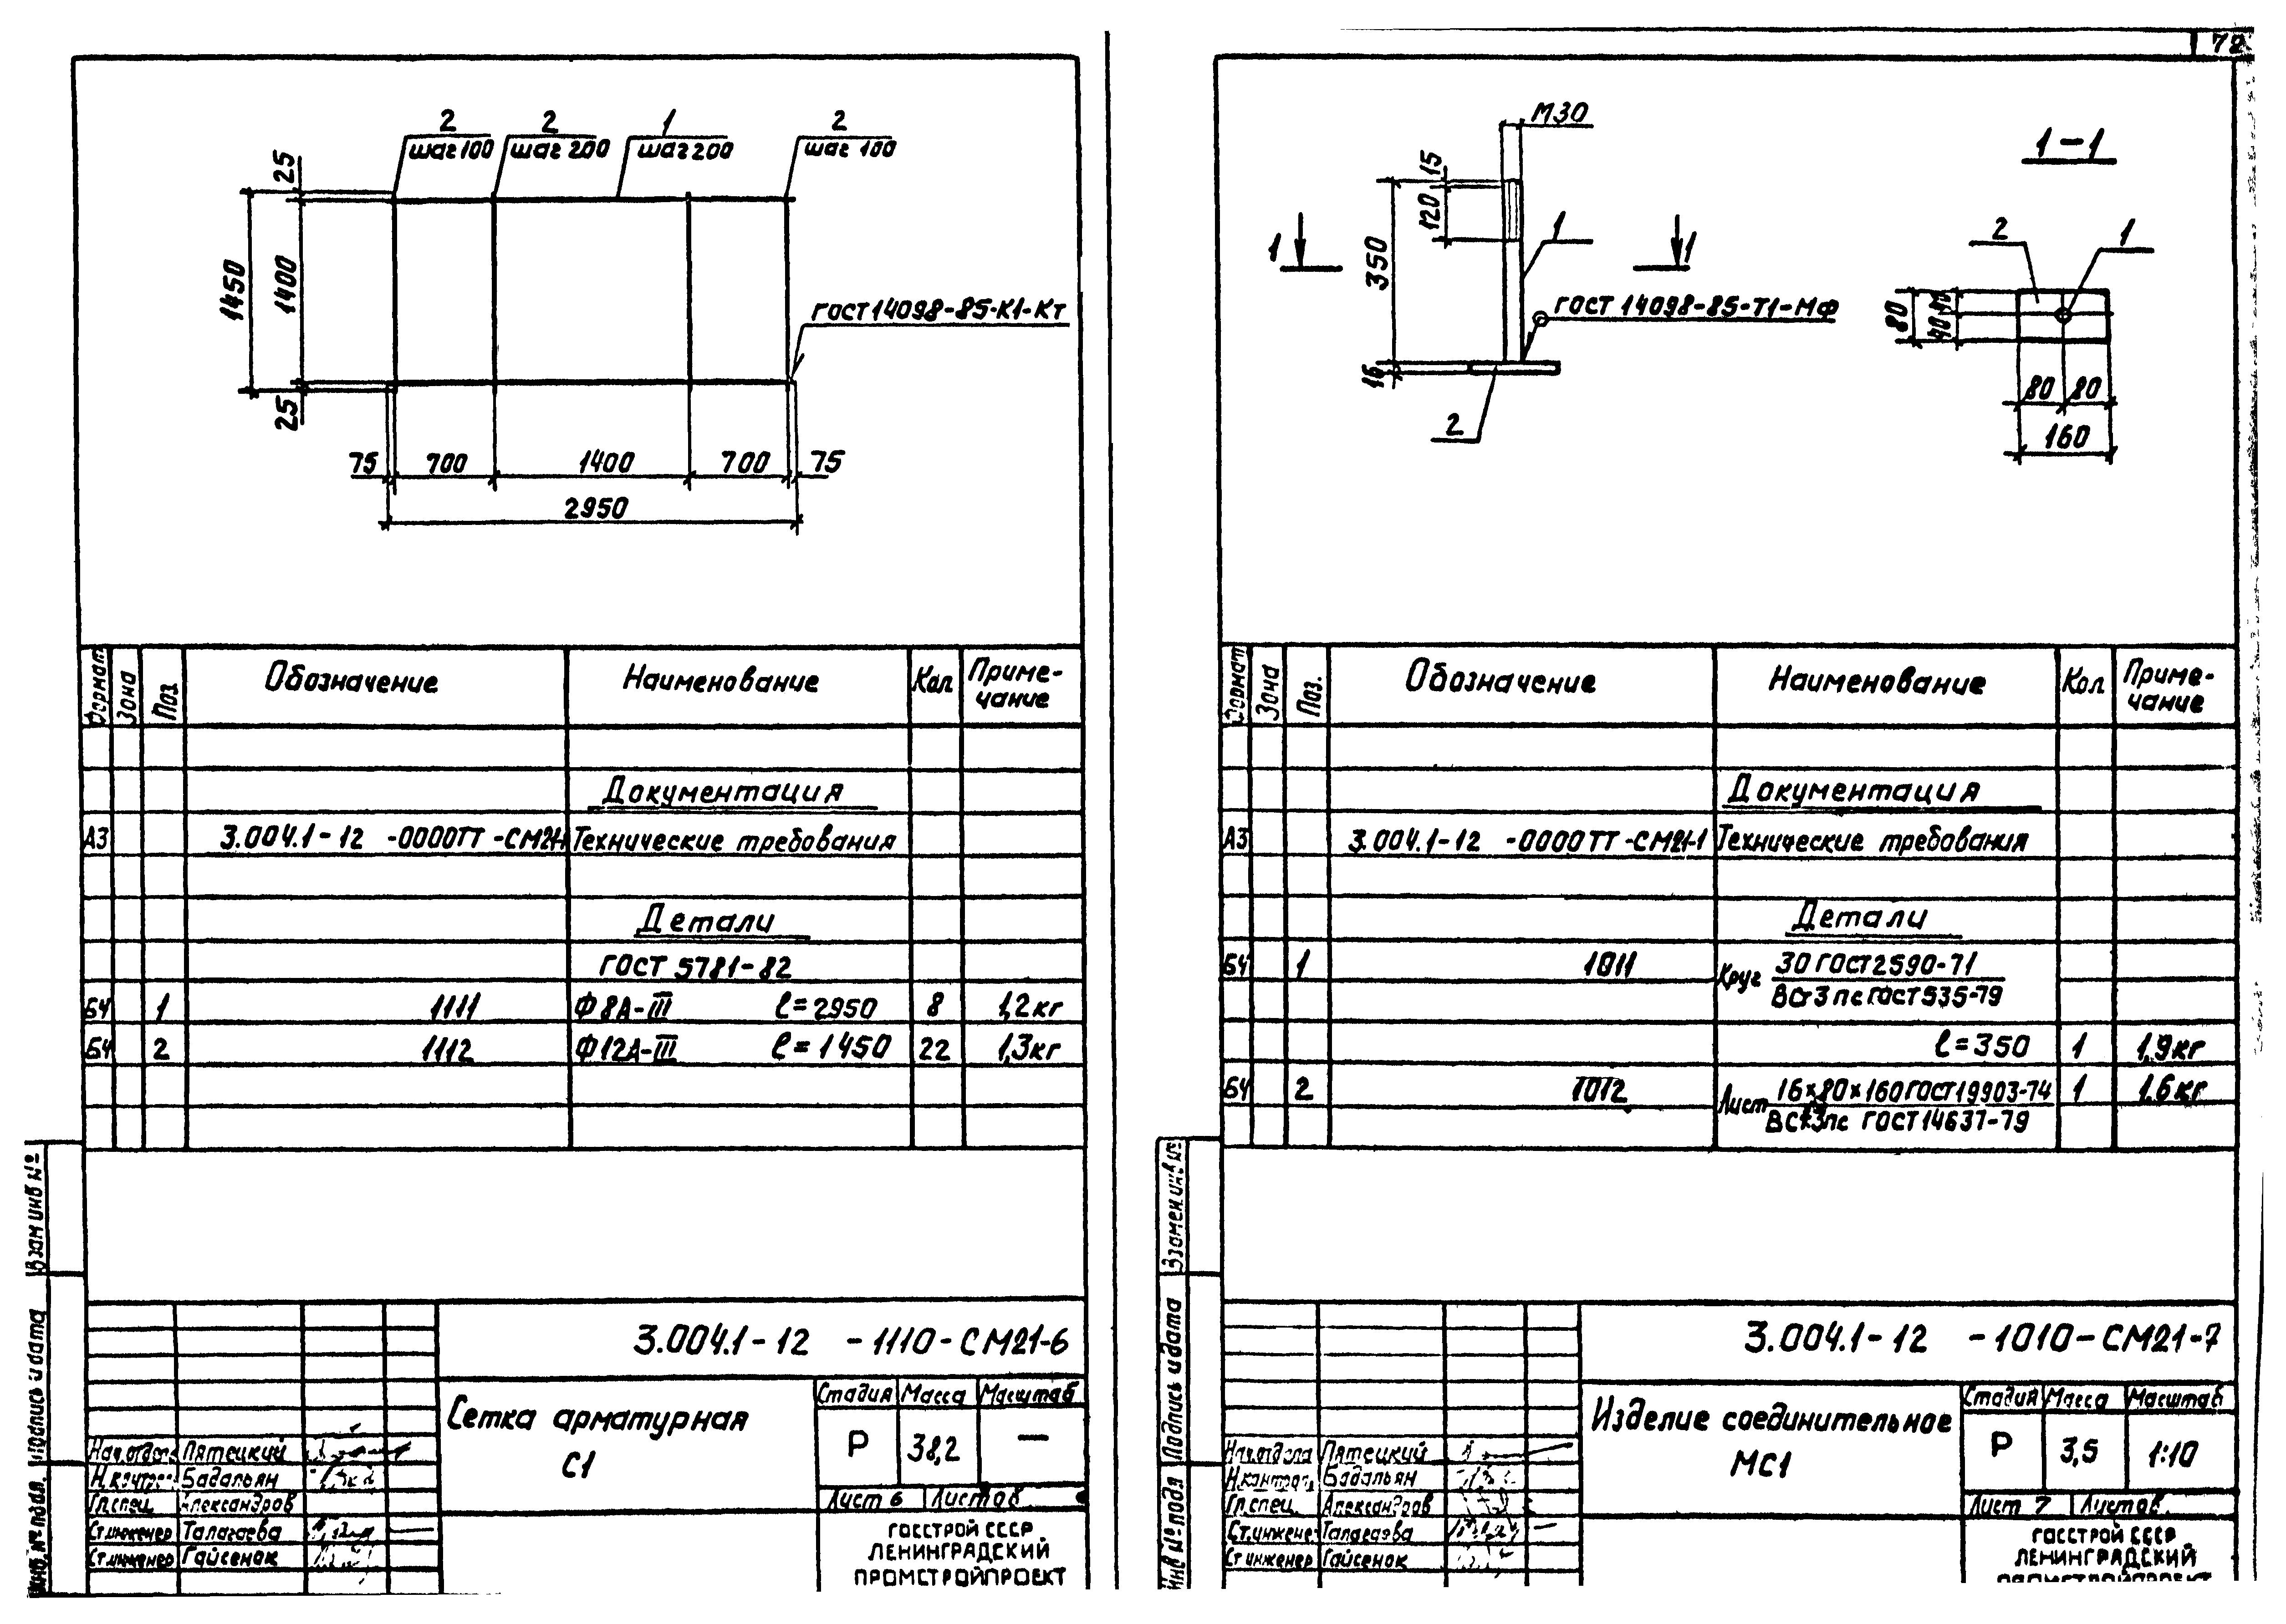 72
2 2 1 2
шаг 100 шаг 200 шаг 200 шаг 100
25
1450
1400
25
ГОСТ 14098-85-К1-Кт
75 700 1400 700 75
2950
Формат Зона Поз Обозначение Наименование Кол Приме-
чание
Документация
А3 3.004.1-12 -0000ТТ-СМ21- Технические требования
Детали
ГОСТ 5781-82
БЧ 1 1111 Ф8А-III ℓ=2950 8 1,2кг
БЧ 2 1112 Ф12А-III ℓ=1450 22 1,3кг
Взам инв №
Подпись и дата
Инв. № подл.
3.004.1-12 -1110-СМ21-6
Сетка арматурная
С1
Стадия Масса Масштаб
Р 38,2 —
Лист 6 Листов
Нач.отдела Пятецкий
Н.контр. Бадальян
Гл.спец. Александров
Ст.инженер Талагаева
Ст.инженер Гайсенок
ГОССТРОЙ СССР
ЛЕНИНГРАДСКИЙ
ПРОМСТРОЙПРОЕКТ
М30
15
120
350
16
1 1
1
ГОСТ 14098-85-Т1-МФ
2
1-1
2 1
80 40 40
80 80
160
Формат Зона Поз. Обозначение Наименование Кол Приме-
чание
Документация
А3 3.004.1-12 -0000ТТ-СМ21-1 Технические требования
Детали
БЧ 1 1011 Круг 30 ГОСТ2590-71
ВСт3пс ГОСТ535-79
ℓ=350 1 1,9кг
БЧ 2 1012 Лист 16×80×160 ГОСТ19903-74 1 1.6кг
ВСт3пс ГОСТ14637-79
Взамен инв №
Подпись и дата
Инв № подл
3.004.1-12 -1010-СМ21-7
Изделие соединительное
МС1
Стадия Масса Масштаб
Р 3,5 1:10
Лист 7 Листов
Нач.отдела Пятецкий
Н.контрол. Бадальян
Гл.спец. Александров
Ст.инженер Талагаева
Ст инженер Гайсенок
ГОССТРОЙ СССР
ЛЕНИНГРАДСКИЙ
ПРОМСТРОЙПРОЕКТ